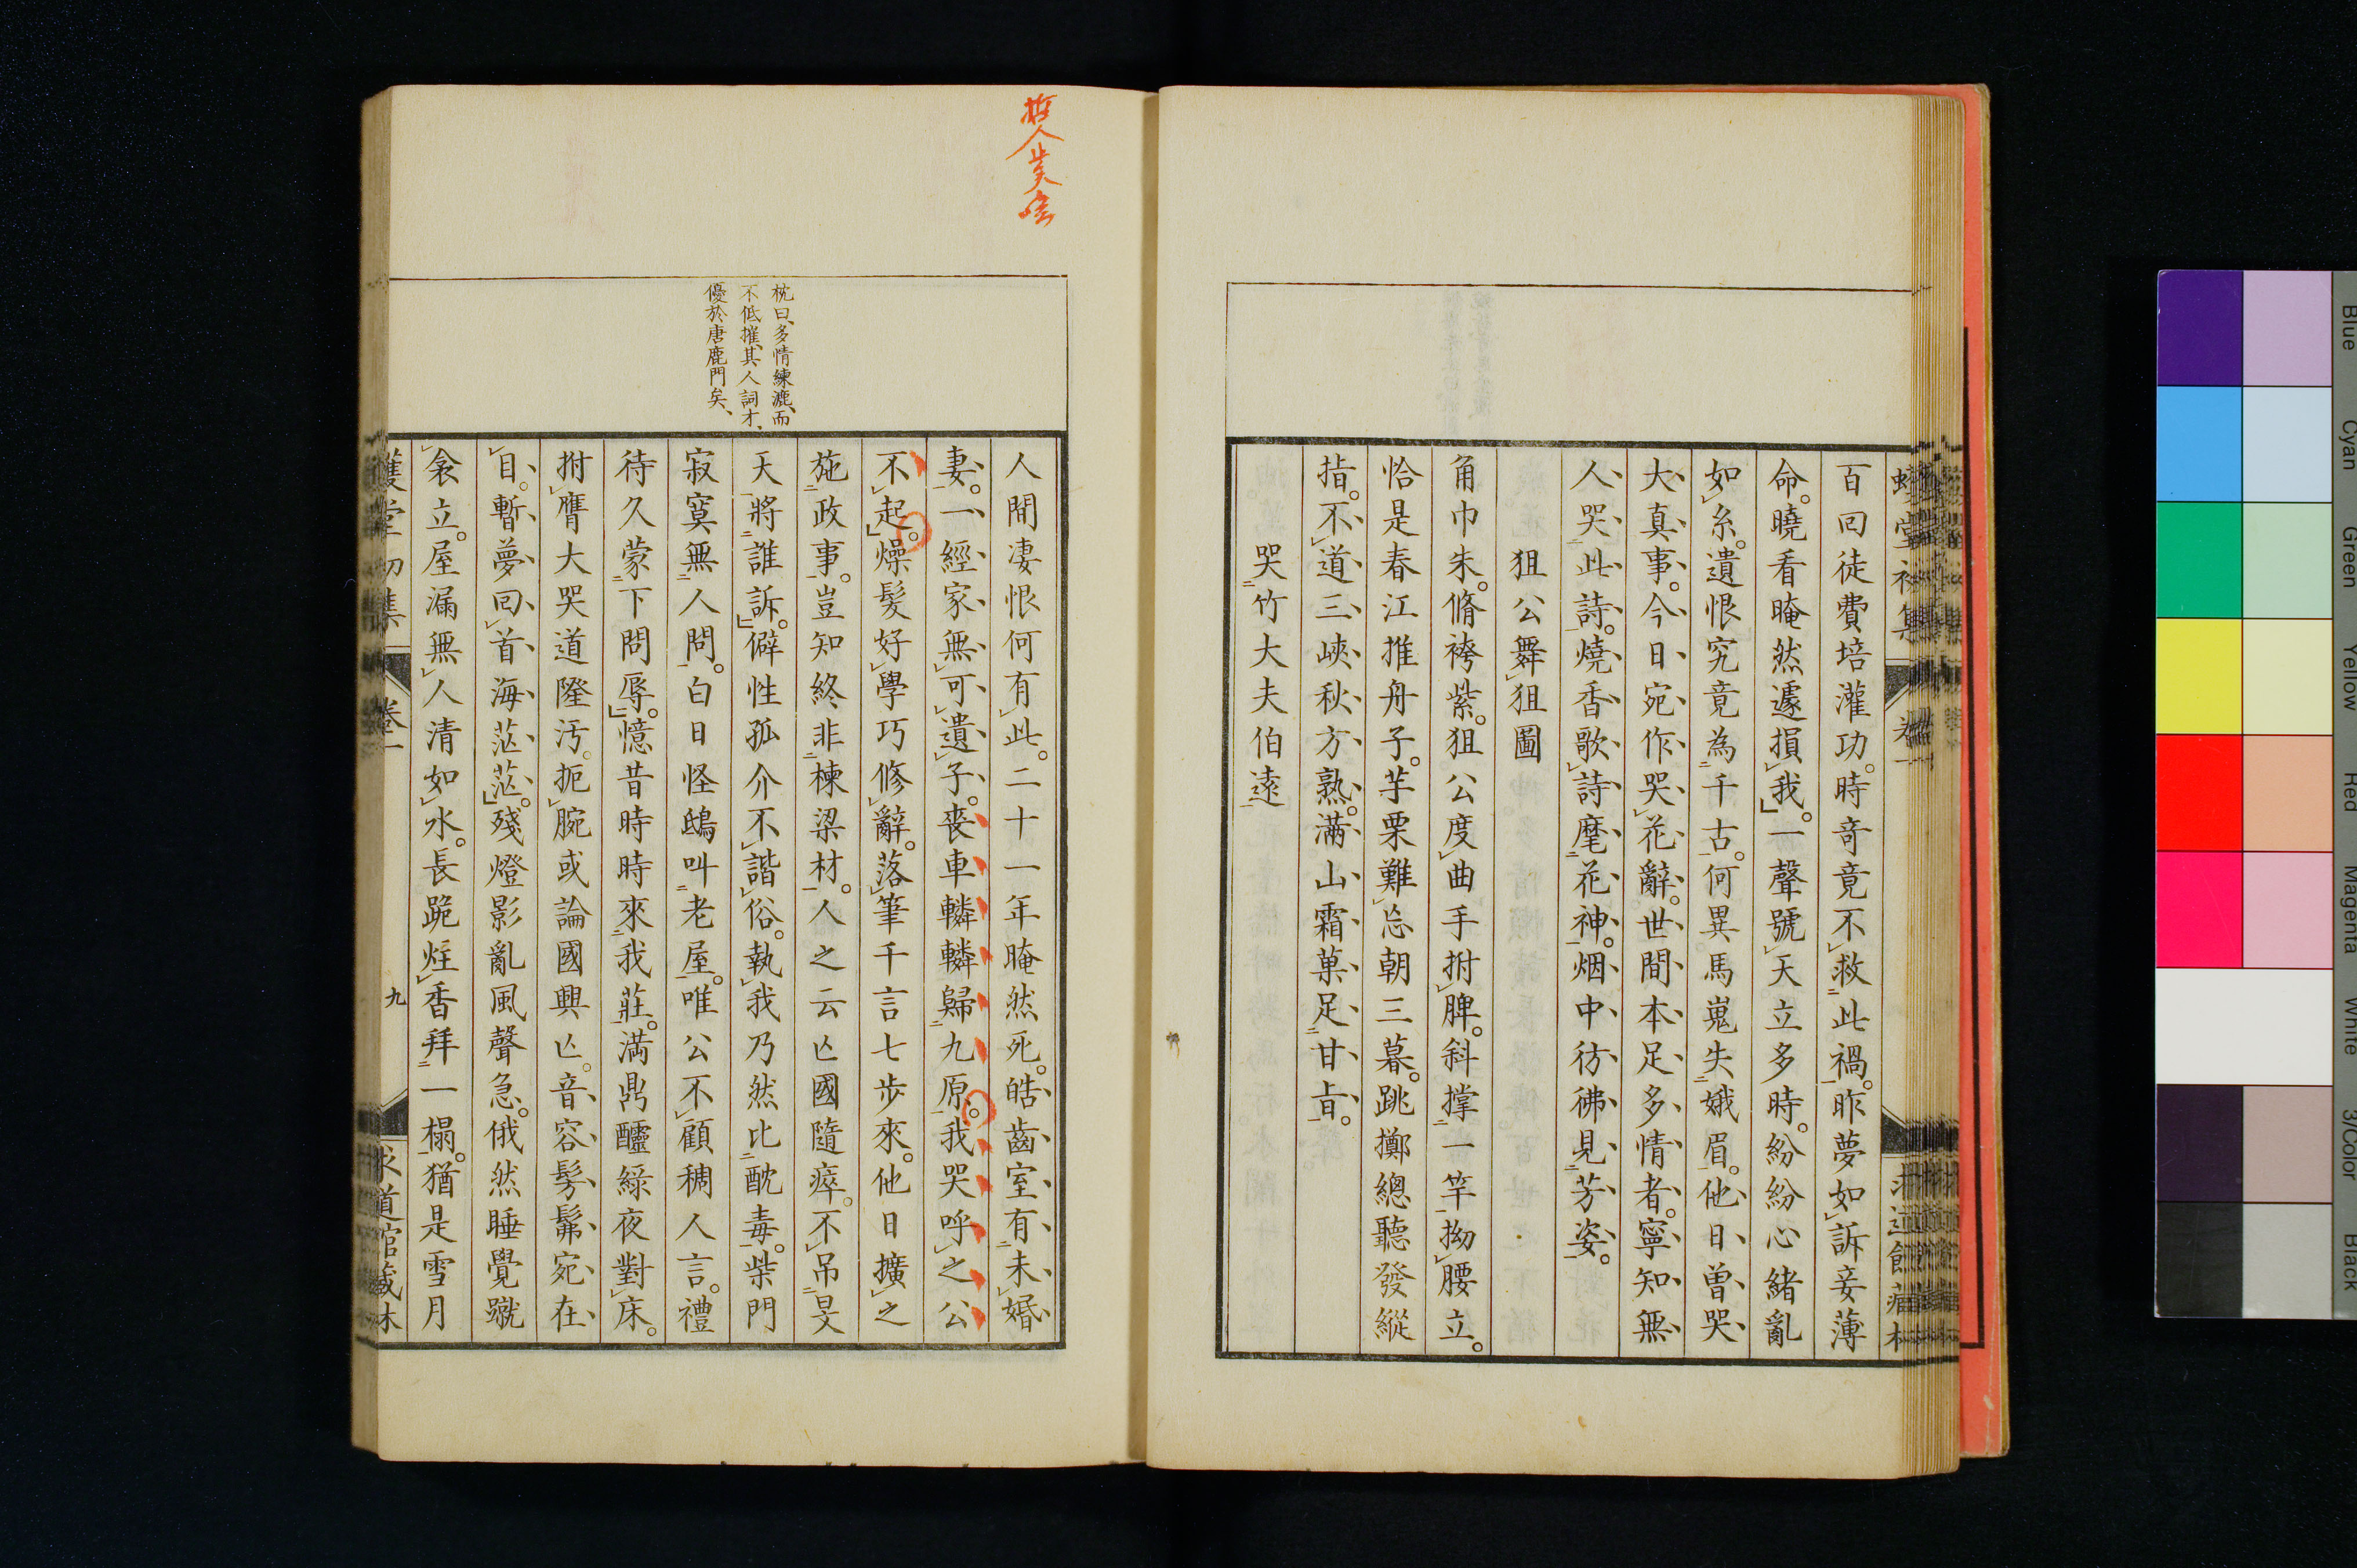 百回徒費培灌功。時奇竟不救此禍。昨夢如訴妾薄
命。曉看晻然遽損我。一聲號天立多時。紛紛心緒亂
如糸。遺恨究竟為千古。何異馬嵬失娥眉。他日曾哭
大真事。今日宛作哭花辭。世間本足多情者。寧知無
人哭此詩。燒香歌詩麾花神。烟中彷彿見芳姿。
狙公舞狙圖
角巾朱。脩袴紫。狙公度曲手拊脾。斜撑一竿拗腰立。
恰是春江推舟子。芧栗難忘朝三暮。跳擲總聽發縱
指。不道三峽秋方熟。滿山霜菓足甘旨。
哭竹大夫伯遠
哲人
枕曰、多情練漉、而
不低摧、其人詞才、
優於唐鹿門矣、
人間凄恨何有此。二十一年晻然死。皓齒室有未婚
妻。一經家無可遺子。喪車轔轔歸九原。我哭呼之公
不起。燥髮好學巧修辭。落筆千言七步來。他日擴之
施政事。豈知終非棟梁材。人之云亡國隨瘁。不吊旻
天將誰訴。僻性孤介不諧俗。執我乃然比酖毒。柴門
寂寞無人問。白日怪鴟叫老屋。唯公不顧稠人言。禮
待久蒙下問辱。憶昔時時來我莊。滿鼎醽綠夜對床。
拊膺大哭道隆汚。扼腕或論國興亡。音容髣髴宛在
目。暫夢回首海茫茫。殘燈影亂風聲急。俄然睡覺蹴
衾立。屋漏無人清如水。長跪炷香拜一榻。猶是雪月
卷一
九
求道館藏